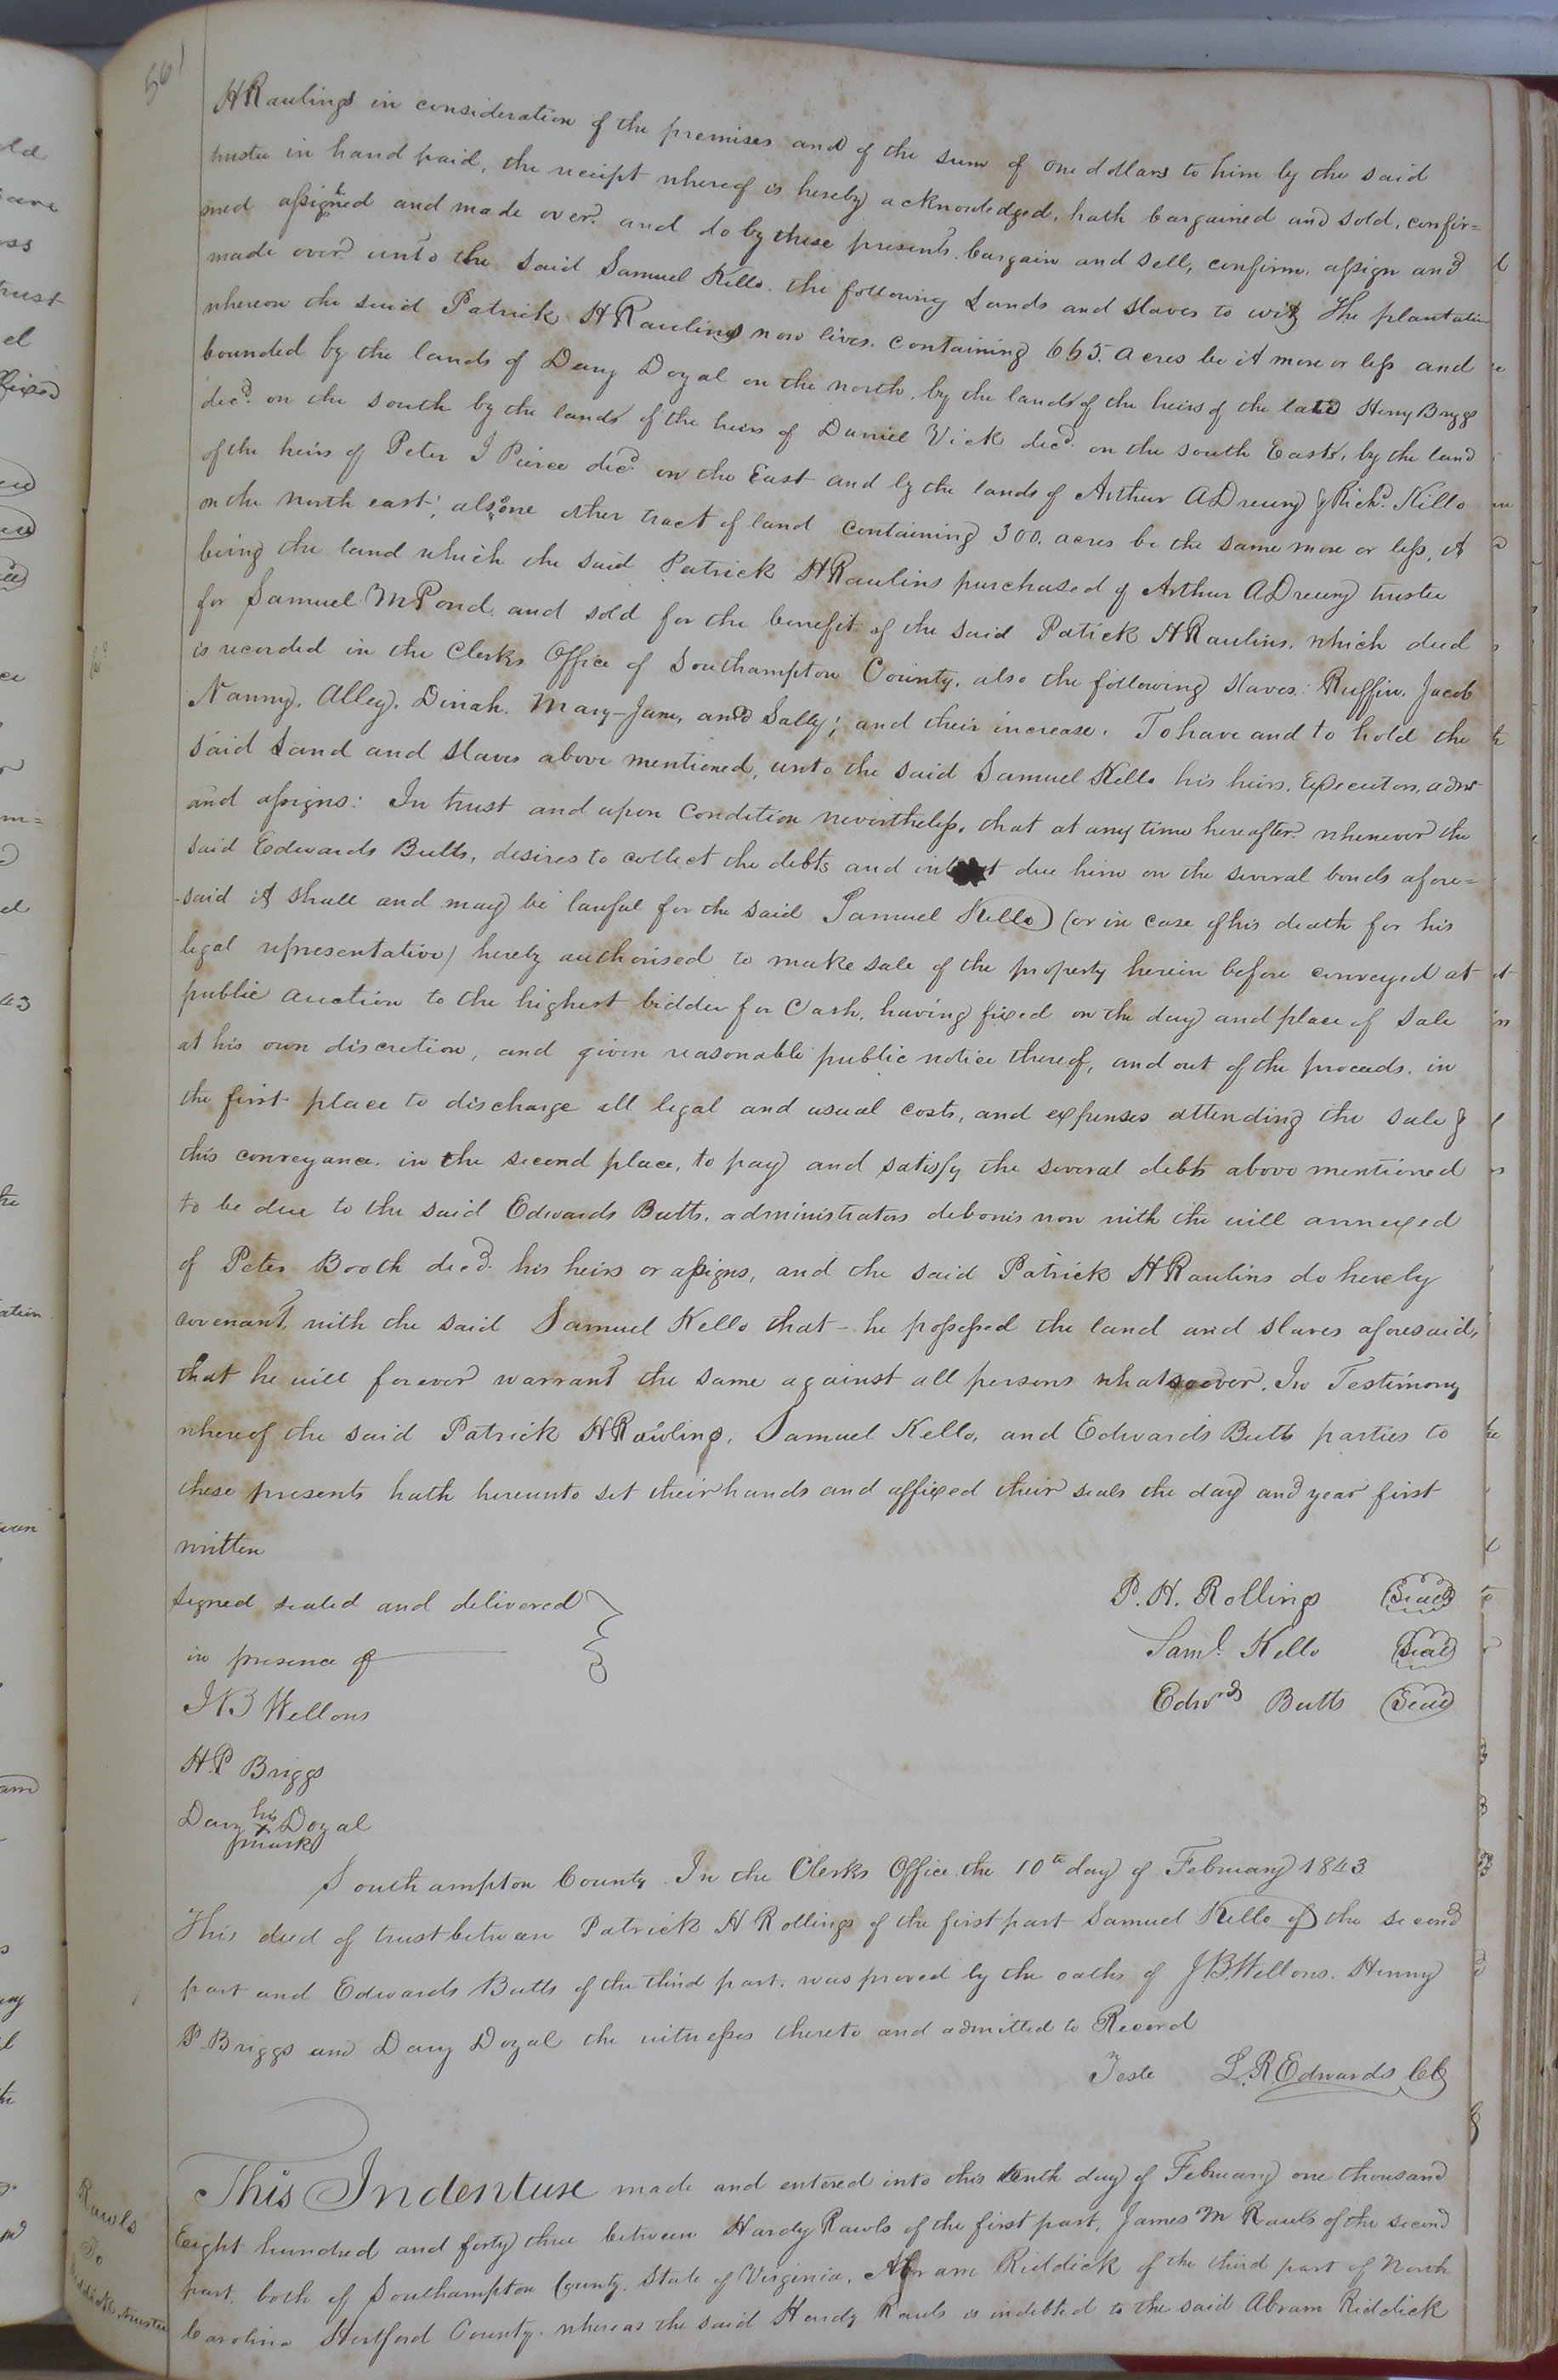 561
H Raulings in consideration of the premises and of the sum of one dollars to him by the said
trustee in hand paid, the receipt whereof is hereby acknowledged, hath bargained and sold, confir=
med assigned and made over. and do by these presents. bargain and sell, confirm, assign and
made over unto the said Samuel Kello. the following Lands and slaves to wit, The plantation
whereon the said Patrick H Raulings now lives. containing 665. acres be it more or less and
bounded by the lands of Davy Doyal on the north, by the lands of the heirs of the late Henry Briggs
decd. on the south by the lands of the heirs of Daniel Vick decd. on the south East, by the land
of the heirs of Peter I Pierce decd on the East and by the lands of Arthur A Drewry & Richd. Kello
on the north east; also one other tract of land containing 300. acres be the same more or less, it
being the land which the said Patrick H Raulins purchased of Arthur A Drewry trustee
for Samuel M Pond. and sold for the benefit of the said Patick H Raulins, which deed
is recorded in the Clerks Office of Southampton County, also the following slaves: Ruffin, Jacob
Nanny, Alley, Dinah. Mary-Jane, and Sally; and their increase. To have and to hold the
said Land and slaves above mentioned, unto the said Samuel Kello his heirs, Executors, admr
and assigns: In trust and upon condition nevertheless, that at any time hereafter whenever the
said Edwards Butts, desires to collect the debts and due him on the several bonds afore=
-said it shall and may be lawful for the said Samuel Kello (or in case of his death for his
legal representative) hereby authorised to make sale of the property herein before conveyed at
public auction to the highest bidder for Cash, having fixed on the day and place of sale
at his own discretion, and given reasonable public notice thereof, and out of the proceeds. in
the first place to discharge all legal and usual costs, and expenses attending the sale &
this conveyance. in the second place, to pay and satisfy the several debts above mentioned
to be due to the said Edwards Butts, administrators debonis non with the will annexed
of Peter Booth decd. his heirs or assigns, and the said Patrick H Raulins do hereby
covenant, with the said Samuel Kello that - he possessed the land and slaves aforesaid,
that he will forever warrant the same against all persons whatsoever. In Testimony
whereof the said Patrick H Rawlings, Samuel Kello, and Edwards Butts parties to
these presents hath hereunto set their hands and affixed their seals the day and year first
written
Signed sealed and delivered
in presence of
P. H. Rollings Seal
Saml. Kello Seal
Edwds Butts Seal
J B Wellons
H. P Briggs
Davy his x mark Doyal
Southampton County. In the Clerks Office the 10th day of February 1843
This deed of trust between Patrick H Rollings of the first part Samuel Kello of the second
part and Edwards Butts of the third part. was proved by the oaths of J B. Wellons. Henry
P. Briggs and Davy Doyal the witnesses thereto and admitted to Record
Teste L. R. Edwards CC
Rawls
To
Riddick, trustee
This Indenture made and entered into this tenth day of February one thousand
Eight hundred and forty three between Hardy Rawls of the first part, James M Rawls of the second
part. both of Southampton County. State of Virginia, Abram Riddick of the third part of North
Carolina Hertford County. whereas the said Hardy Rawls is indebted to the said Abram Riddick